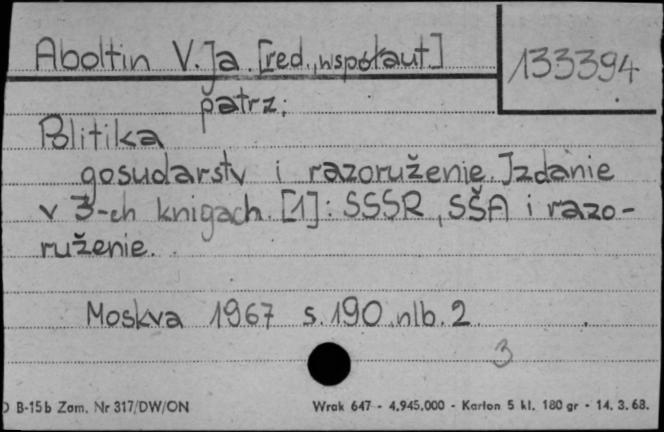 Aboltin V. Ja. [red., współaut]
133394
patrz:
Politika
gosudarstv i razoruženie. Izdanie
v 3-ch knigach. [1]: SSSR, SŠA i razo-
ruženie.
Moskva 1967 s. 190, nlb. 2
3
B-15b Zam. Nr 317/DW/ON
Wrak 647 - 4.945.000 - Karton 5 kl. 180 gr - 14. 3. 68.